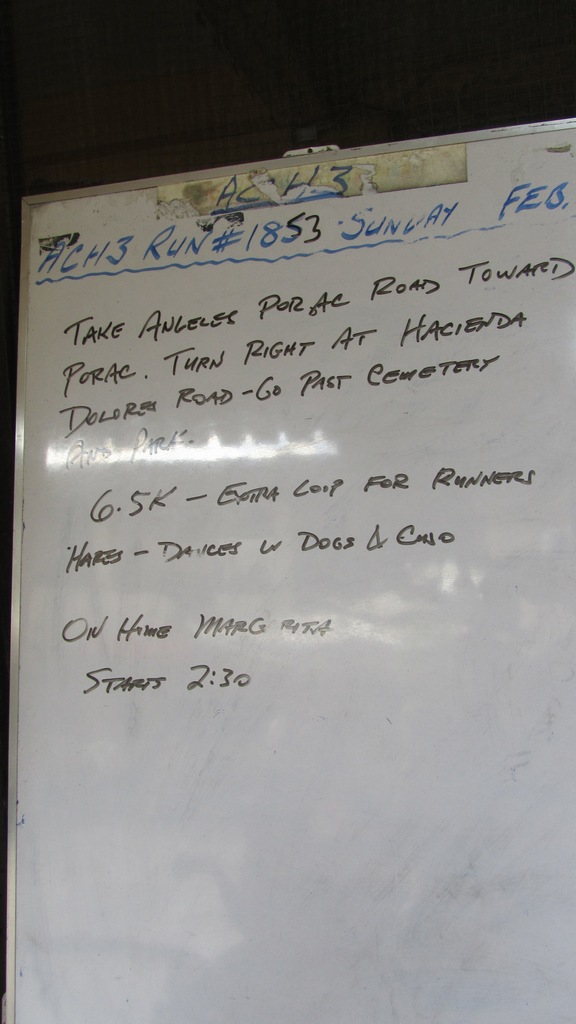 ACH3
ACH3 RUN #1853 SUNDAY FEB.
TAKE ANGELES PORAC ROAD TOWARD
PORAC. TURN RIGHT AT HACIENDA
DOLORES ROAD - GO PAST CEMETERY
AND PARK.
6.5K - EXTRA LOOP FOR RUNNERS
HARES - DANCES W DOGS &
ON HOME MARG RITA
STARTS 2:30